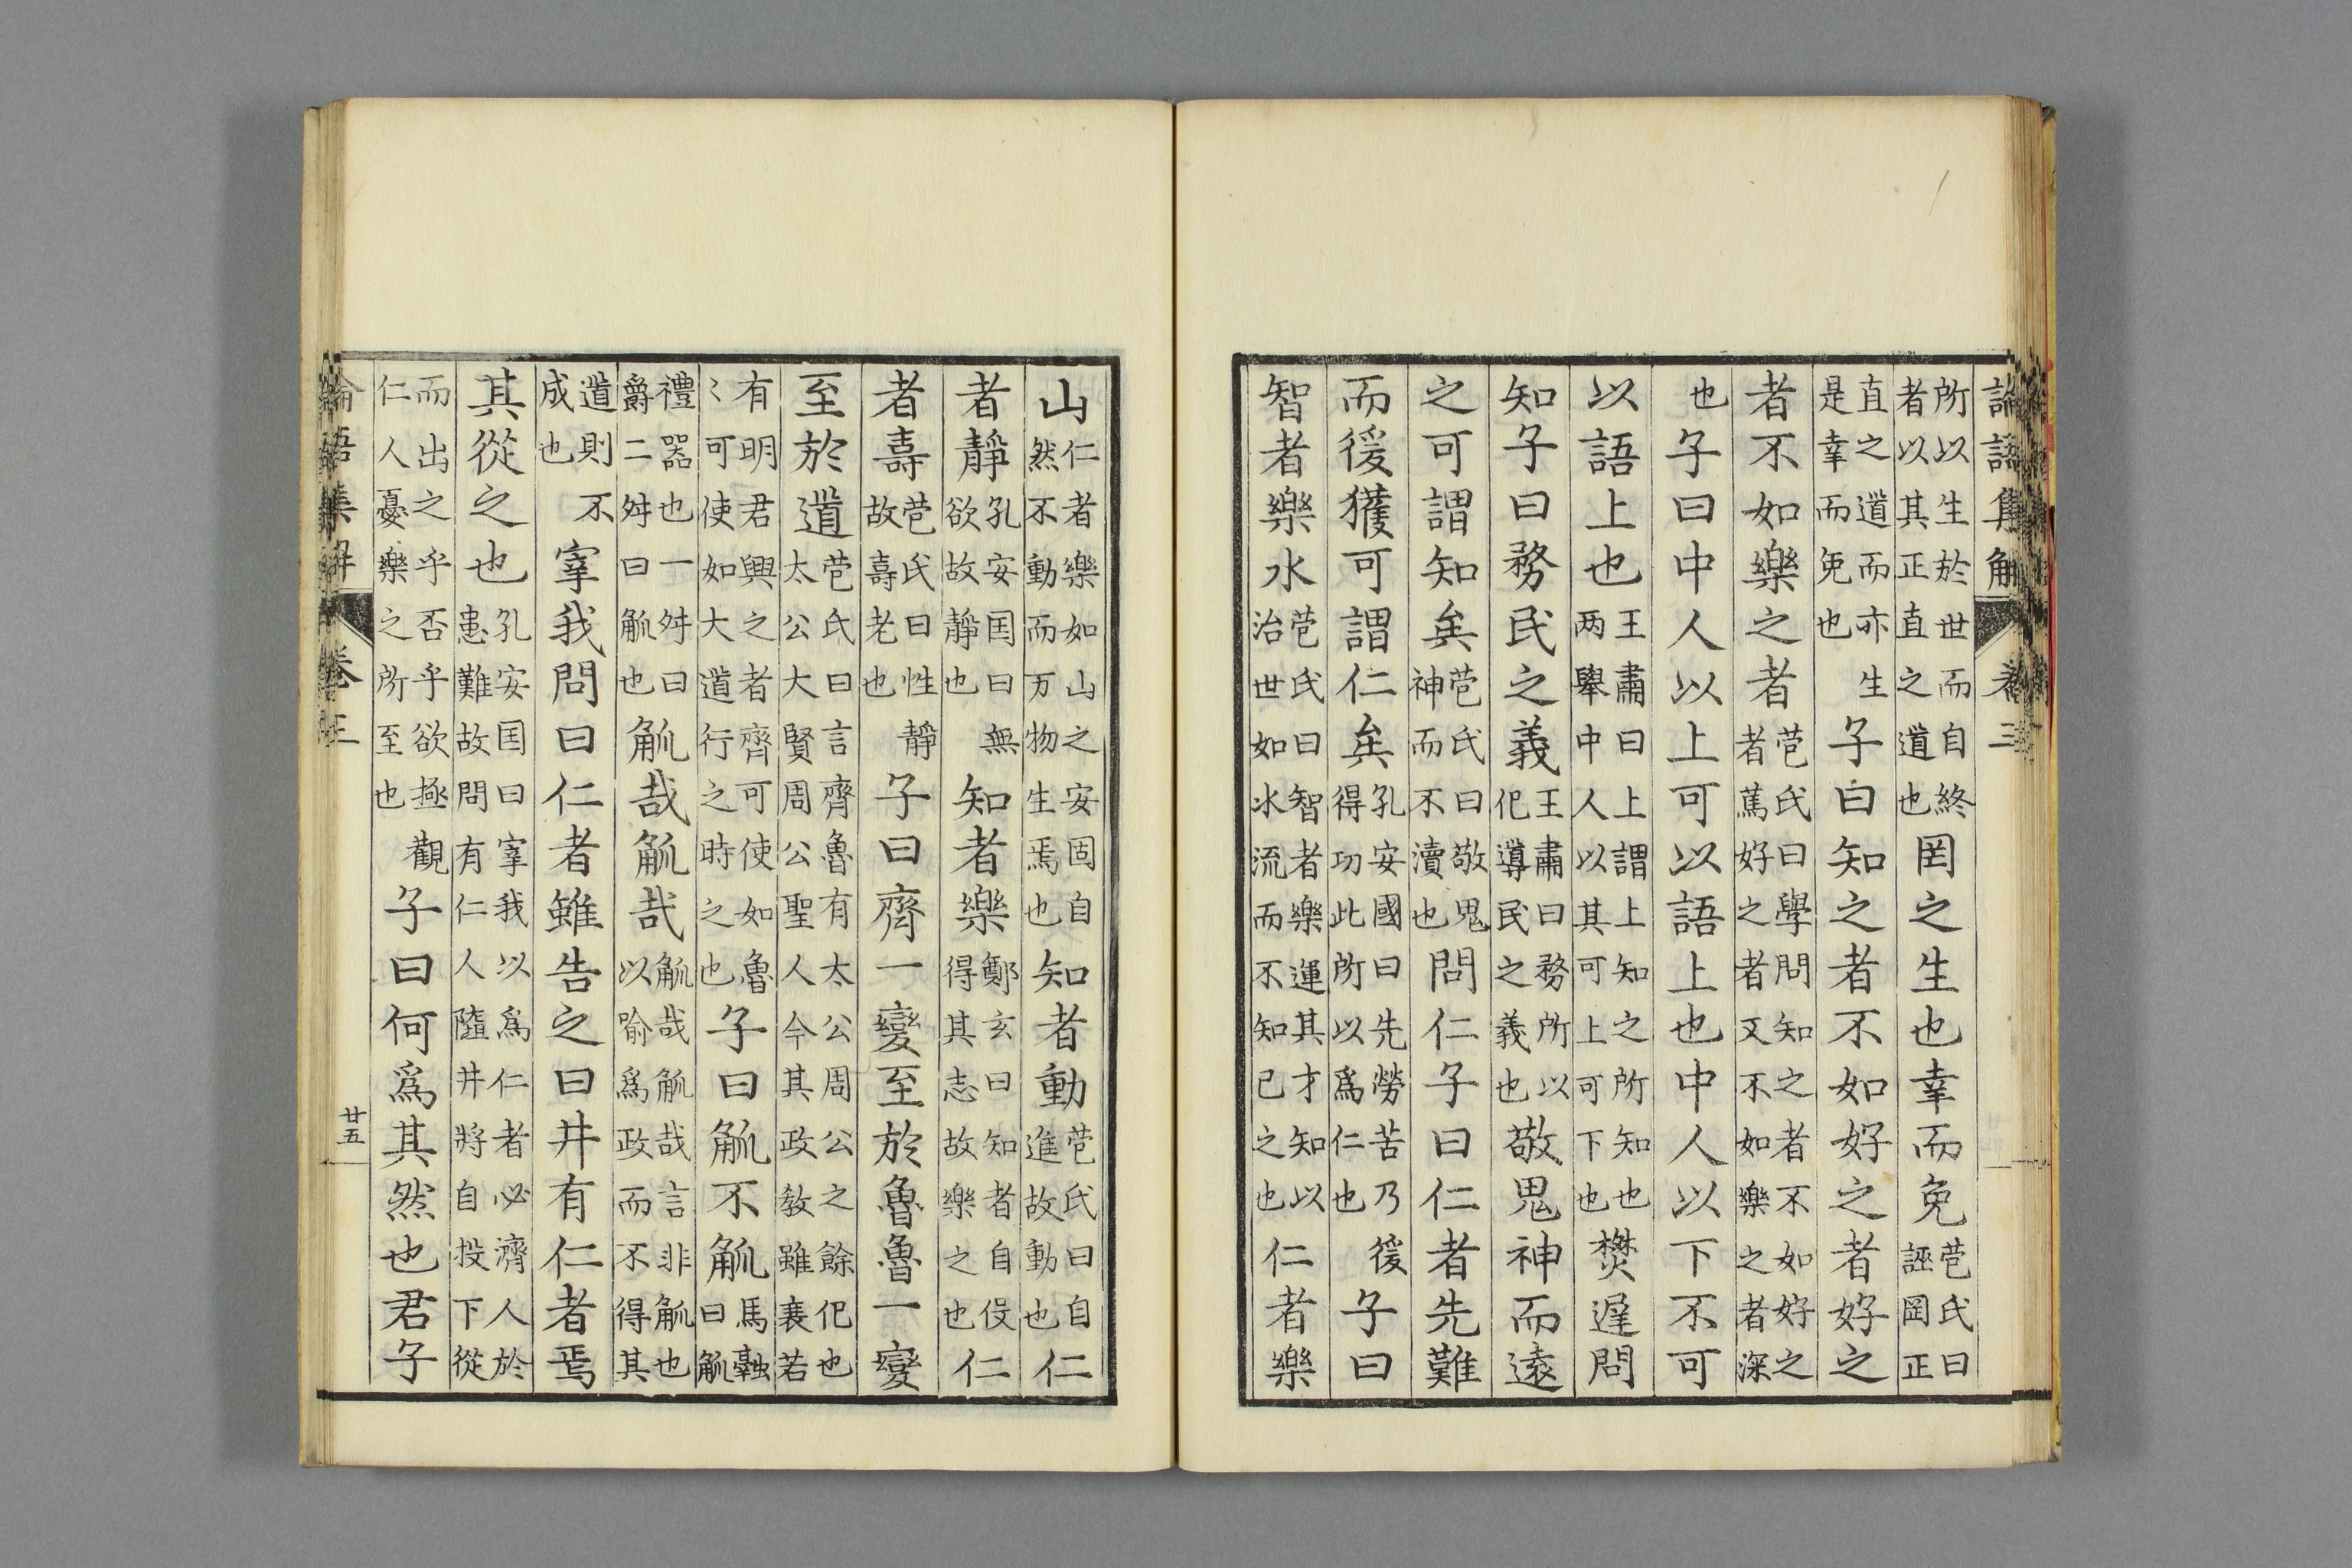 論語集解 卷三
所以生於世而自終者以其正直之道也罔之生也幸而免苞氏曰誣罔正
直之道而亦生是幸而免也子曰知之者不如好之者好之
者不如樂之者苞氏曰學問知之者不如好之者篤好之者又不如樂之者深
也子曰中人以上可以語上也中人以下不可
以語上也王肅曰上謂上知之所知也两舉中人以其可上可下也樊遲問
知子曰務民之義王肅曰務所以化導民之義也敬鬼神而遠
之可謂知矣苞氏曰敬鬼神而不瀆也問仁子曰仁者先難
而後獲可謂仁矣孔安國曰先勞苦乃後得功此所以爲仁也子曰
智者樂水苞氏曰智者樂運其才知以治世如水流而不知已之也仁者樂
山仁者樂如山之安固自然不動而万物生焉也知者動苞氏曰自進故動也仁
者靜孔安国曰無欲故靜也知者樂鄭玄曰知者自役得其志故樂之也仁
者壽苞氏曰性靜故壽老也子曰齊一變至於魯魯一變
至於道苞氏曰言齊魯有太公周公之餘化也太公大賢周公聖人今其政教雖衰若
有明君興之者齊可使如魯〻可使如大道行之時之也子曰觚不觚馬融曰觚
禮器也一舛曰爵二舛曰觚也觚哉觚哉觚哉觚哉言非觚也以喻爲政而不得其
道則不成也宰我問曰仁者雖告之曰井有仁者焉
其從之也孔安国曰宰我以爲仁者必濟人於患難故問有仁人隨井將自投下從
而出之乎否乎欲極觀仁人憂樂之所至也子曰何爲其然也君子
論語集解 卷三 廿五